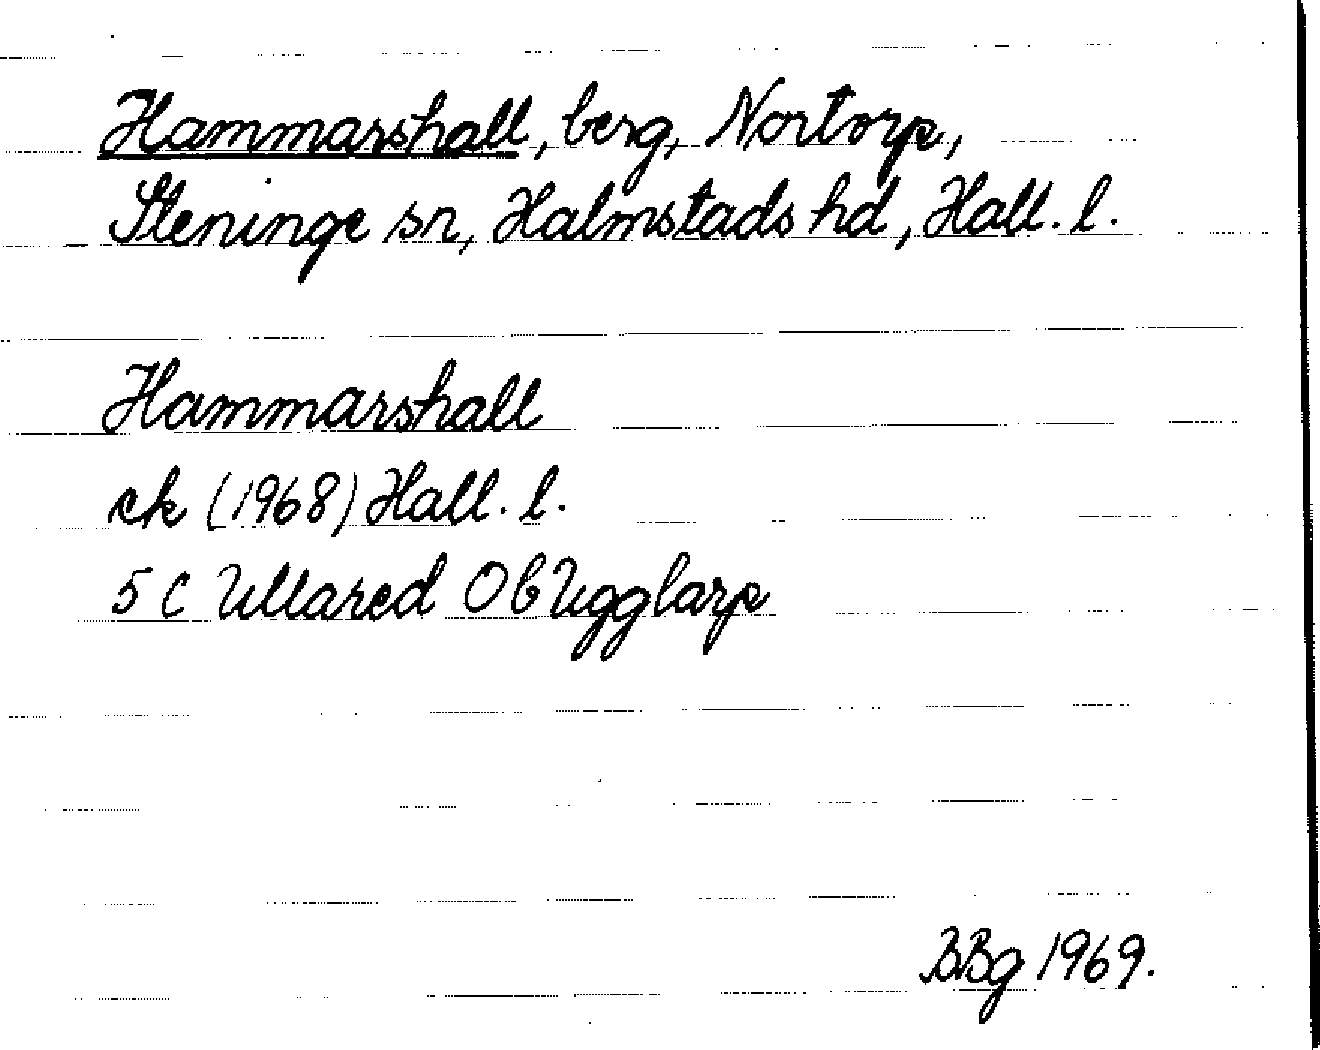 Hammarshall, berg, Nortorp,
Steninge sn, Halmstads hd, Hall. l.
Hammarshall
ek (1968) Hall. l.
5 C Ullared 0 b Ugglarp
BBg 1969.